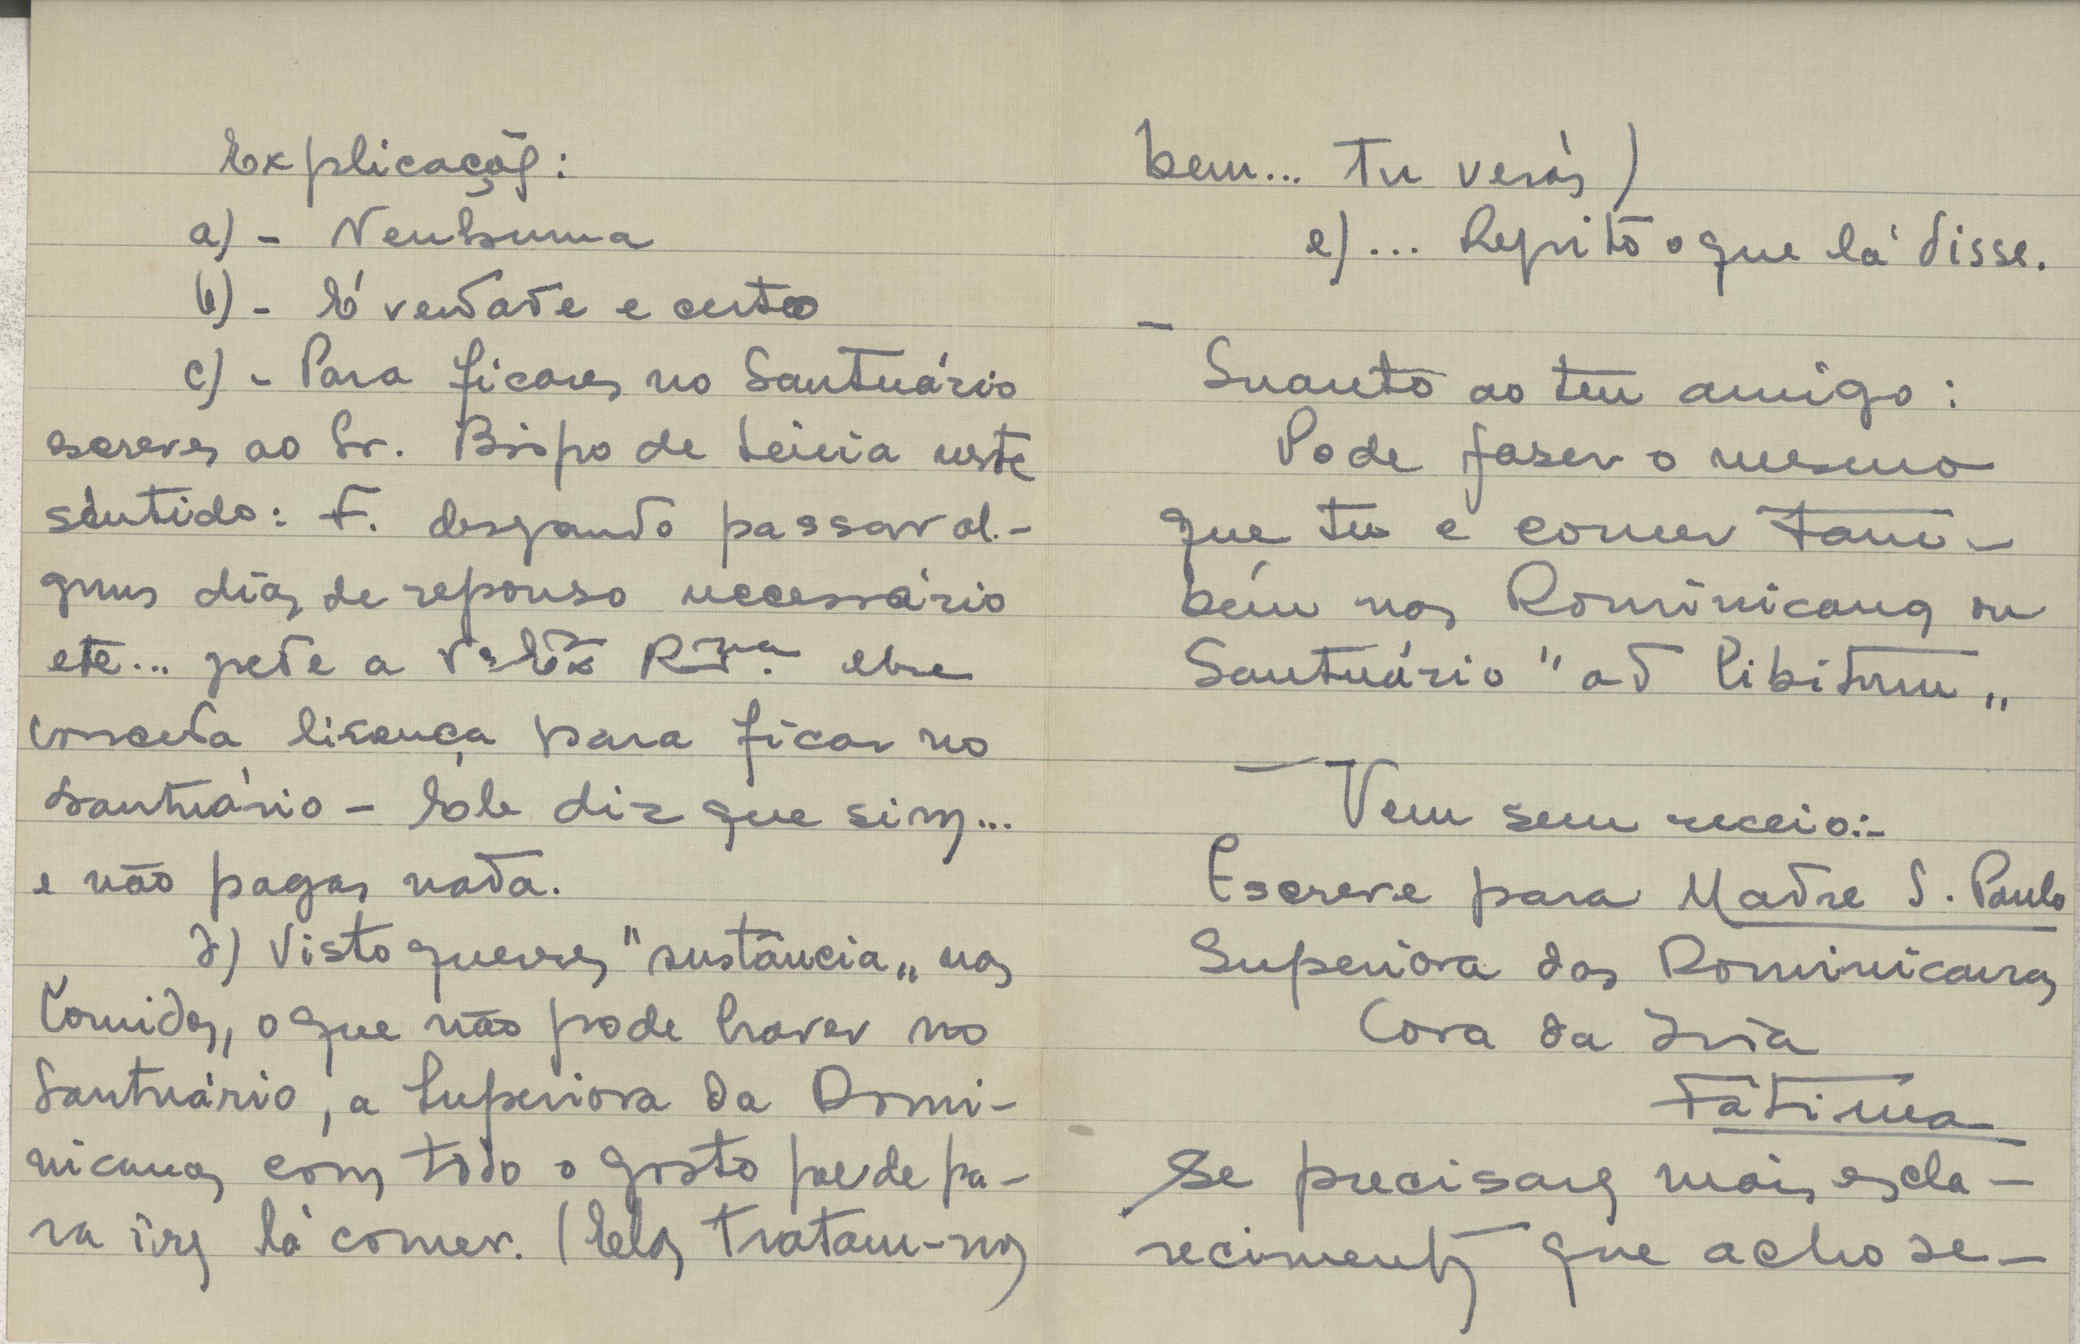 Explicação:
a) - Nenhuma
b) - É verdade e certo
c) - Para ficares no Santuário
escreves ao Sr. Bispo de Leiria neste
sentido: F. desejando passar al-
guns dias de repouso necessário
etc... pede a Vª Exª Rma. lhe
conceda licença para ficar no
Santuário - Ele diz que sim...
e não pagas nada.
d) Visto queres "sustância" nas
Comidas, o que não pode haver no
Santuário, a Superiora da Domi-
nicanas com todo o gosto pede pa-
ra ires lá comer. (Elas tratam-nos
bem... tu verás)
e) ... Repito o que lá disse.
-
Quanto ao teu amigo:
Pode faser o mesmo
que tu e comer tam-
bém nas Dominicanas ou
Santuário "ad libitum"
- Vem sem receio:-
Escreve para Madre S. Paulo
Superiora das Dominicanas
Cova da Iria
Fátima
Se precisares mais escla-
recimentos que acho se-